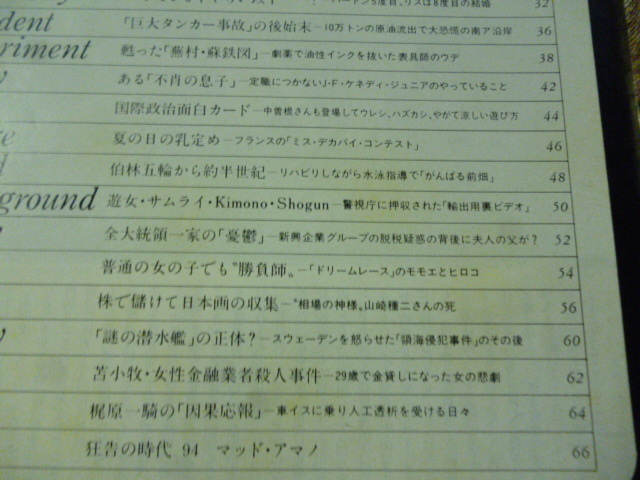 バートン5度目、リズは8度目の結婚 32
dent 「巨大タンカー事故」の後始末―10万トンの原油流出で大恐慌の南ア沿岸 36
riment 甦った「蕪村・蘇鉄図」―劇薬で油性インクを抜いた表具師のウデ 38
y ある「不肖の息子」―定職につかないJ・F・ケネディ・ジュニアのやっていること 42
国際政治面白カード―中曽根さんも登場してウレシ、ハズカシ、やがて涼しい遊び方 44
夏の日の乳定め―フランスの「ミス・デカパイ・コンテスト」 46
伯林五輪から約半世紀―リハビリしながら水泳指導で「がんばる前畑」 48
ground 遊女・サムライ・Kimono・Shogun―警視庁に押収された「輸出用裏ビデオ」 50
全大統領一家の「憂鬱」―新興企業グループの脱税疑惑の背後に夫人の父が? 52
普通の女の子でも〝勝負師〟―「ドリームレース」のモモエとヒロコ 54
株で儲けて日本画の収集―〝相場の神様〟山崎種二さんの死 56
y 「謎の潜水艦」の正体?―スウェーデンを怒らせた「領海侵犯事件」のその後 60
苫小牧・女性金融業者殺人事件―29歳で金貸しになった女の悲劇 62
梶原一騎の「因果応報」―車イスに乗り人工透析を受ける日々 64
狂告の時代 94 マッド・アマノ 66